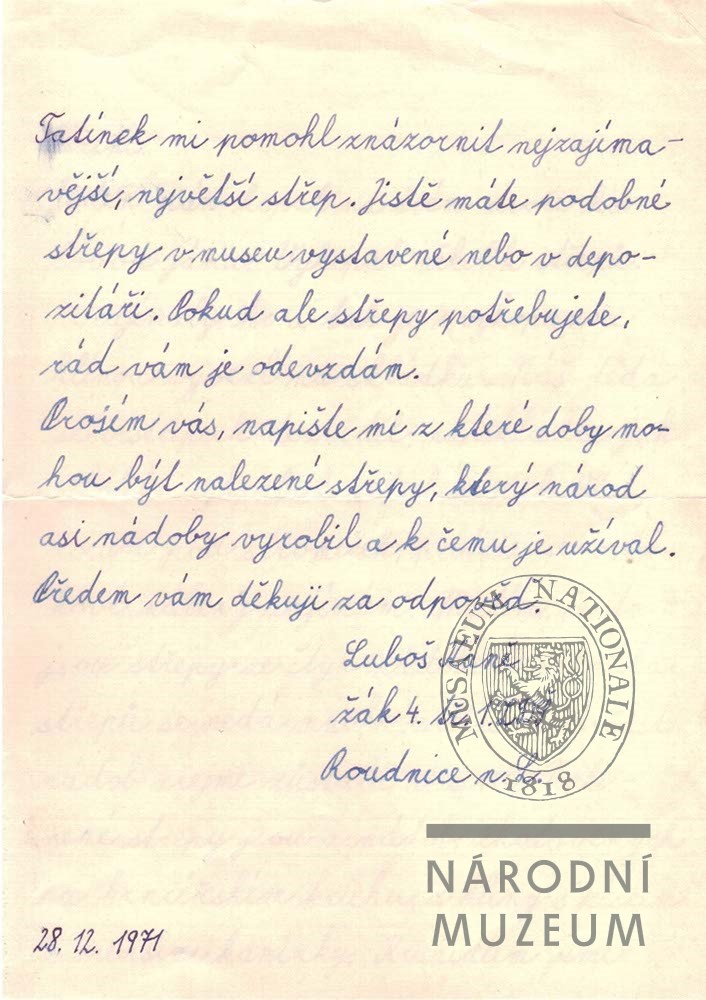 Tatínek mi pomohl znázornit nejzajíma-
vější, největší střep. Jistě máte podobné
střepy v museu vystavené nebo v depo-
zitáři. Pokud ale střepy potřebujete,
rád vám je odevzdám.
Prosím vás, napište mi z které doby mo-
hou být nalezené střepy, který národ
asi nádoby vyrobil a k čemu je užíval.
Předem vám děkuji za odpověď.
Luboš
žák 4. 1.
Roudnice n. L.
MUSAEUM NATIONALE
1818
NÁRODNÍ
MUZEUM
28. 12. 1971